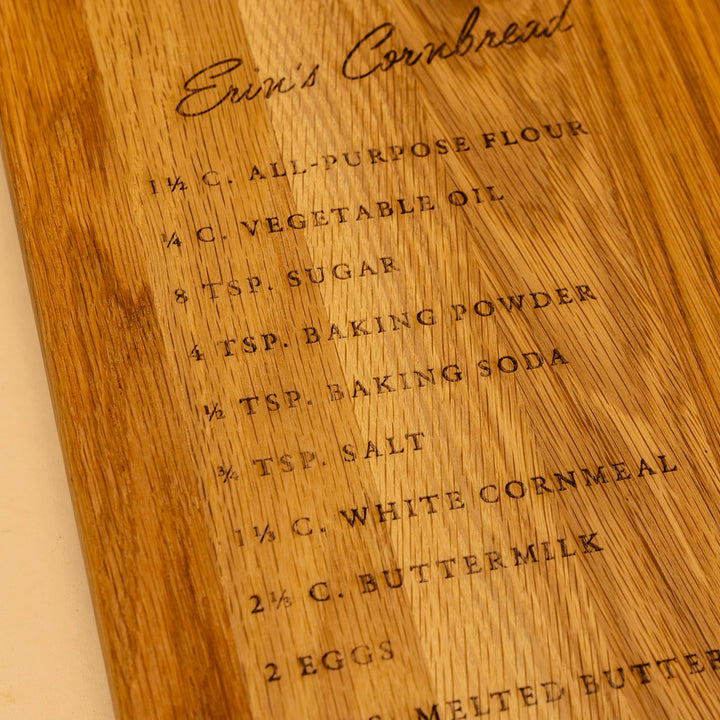 Erin's Cornbread
1 ½ C. ALL-PURPOSE FLOUR
¼ C. VEGETABLE OIL
8 TSP. SUGAR
4 TSP. BAKING POWDER
½ TSP. BAKING SODA
¾ TSP. SALT
1 ⅓ C. WHITE CORNMEAL
2 ⅓ C. BUTTERMILK
2 EGGS
C. MELTED BUTTER